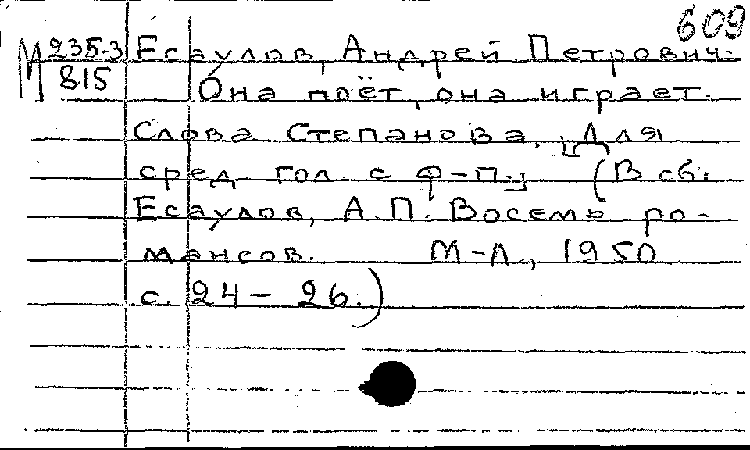 609
М 235-3 Есаулов, Андрей Петрович.
815 Она поёт, она играет.
Слова Степанова. [Для
сред. гол. с ф-п.] (В сб:
Есаулов, А.П. Восемь ро-
мансов. М-Л., 1950
с. 24 - 26.)